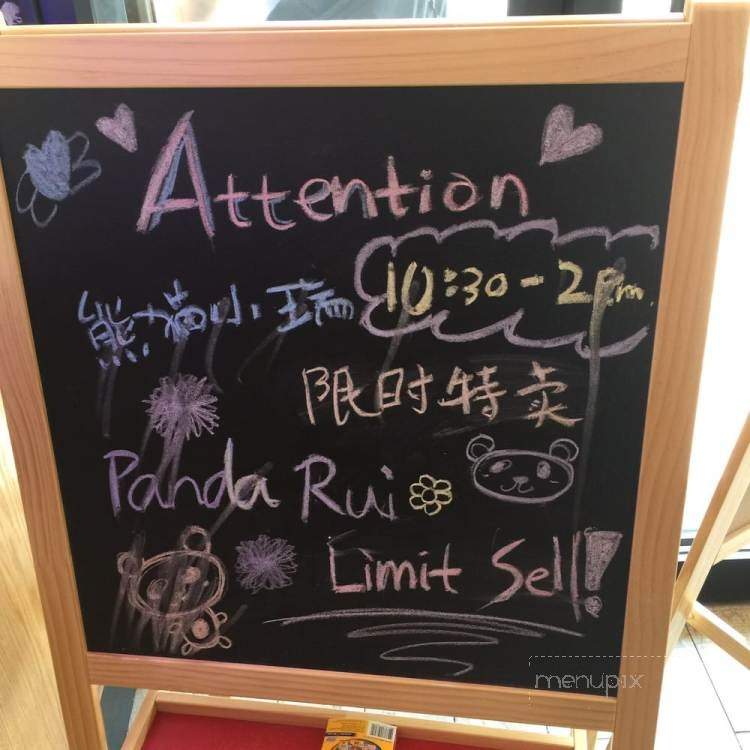 Attention
10:30-2pm.
熊猫小瑞
限时特卖
Panda Rui
Limit Sell!
menupix